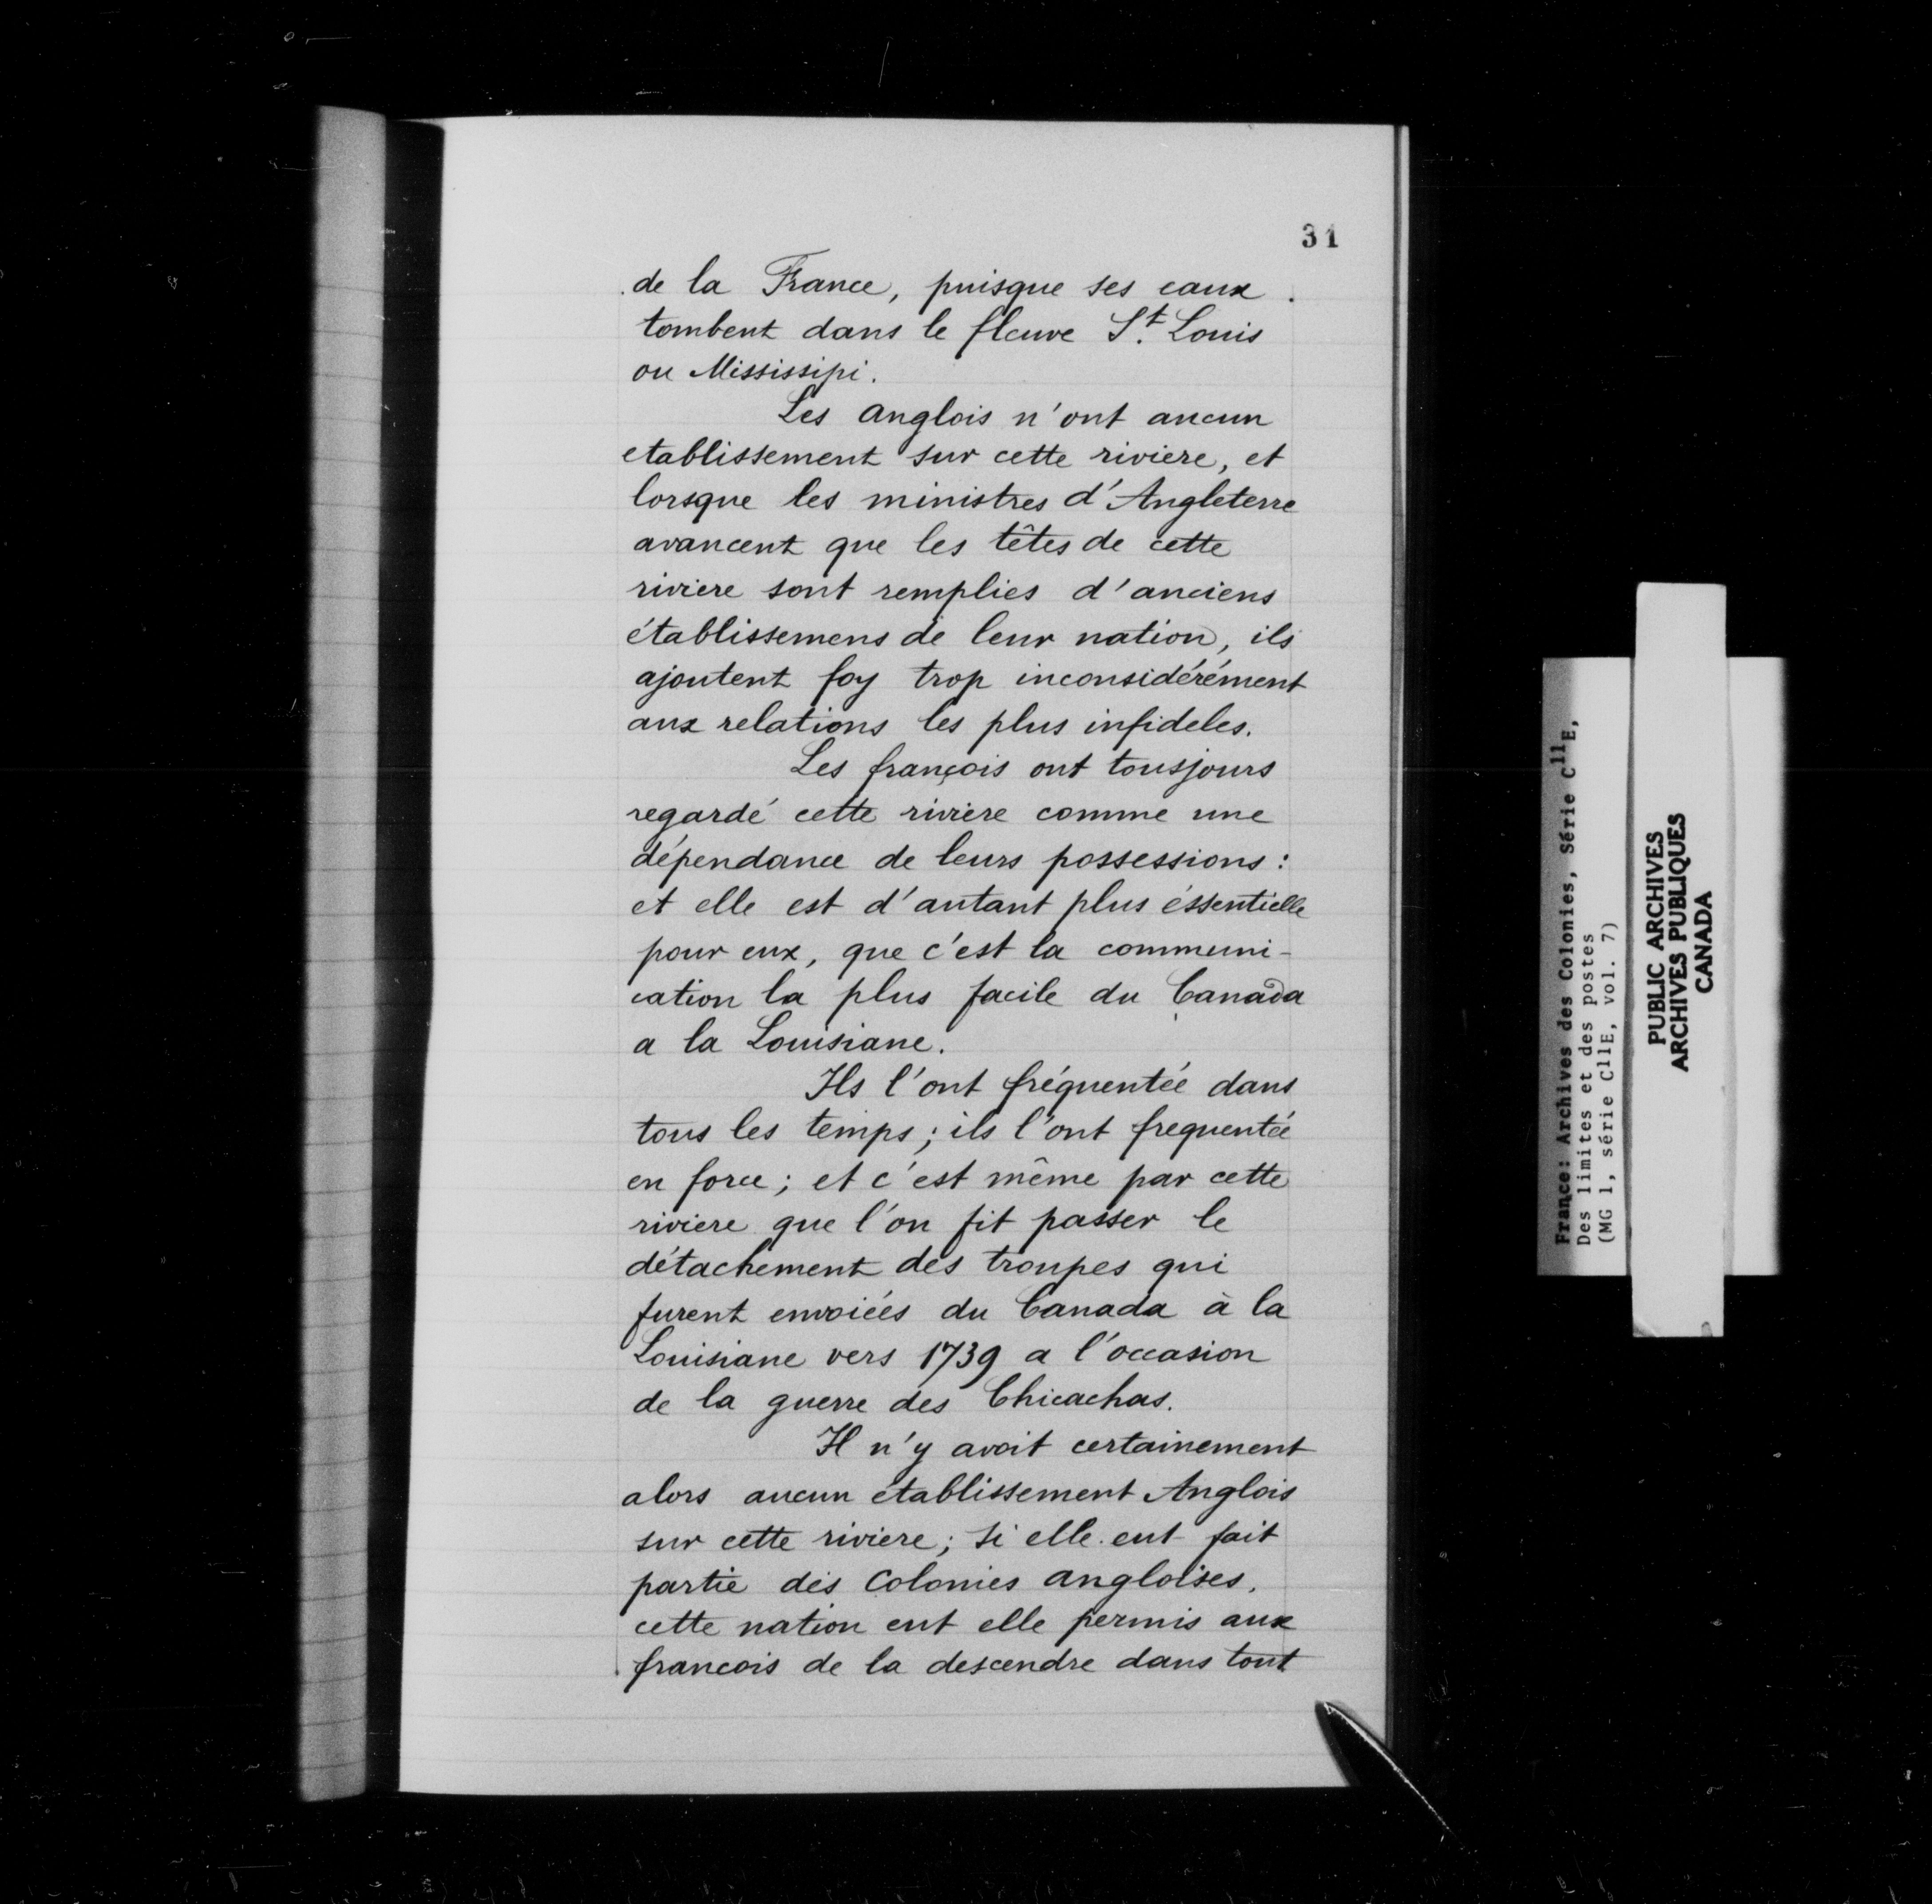 31
de la France, puisque ses eaux
tombent dans le fleuve St. Louis
ou Mississipi.
Les anglois n'ont aucun
etablissement sur cette riviere, et
lorsque les ministres d'Angleterre
avancent que les têtes de cette
riviere sont remplies d'anciens
établissemens de leur nation, ils
ajoutent foy trop inconsidérément
aux relations les plus infideles.
Les françois ont tousjours
regardé cette riviere comme une
dépendance de leurs possessions :
et elle est d'autant plus éssentielle
pour eux, que c'est la communi-
cation la plus facile du Canada
a la Louisiane.
Ils l'ont fréquentée dans
tous les temps ; ils l'ont frequentée
en force ; et c'est même par cette
riviere que l'on fit passer le
détachement des troupes qui
furent envoiées du Canada à la
Louisiane vers 1739 a l'occasion
de la guerre des Chicachas.
Il n'y avoit certainement
alors aucun établissement Anglois
sur cette riviere ; si elle eut fait
partie des Colonies angloises,
cette nation eut elle permis aux
francois de la descendre dans tout
France: Archives des Colonies, Série C11E,
Des limites et des postes
(MG 1, série C11E, vol. 7)
PUBLIC ARCHIVES
ARCHIVES PUBLIQUES
CANADA